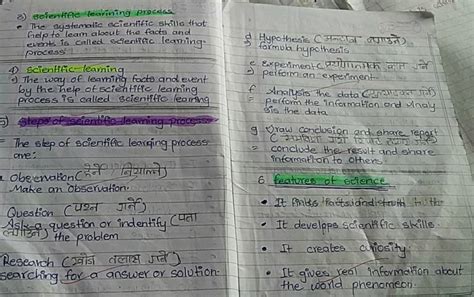 3) scientific learining process
• The systematic scientific skills that
help to learn about the facts and
events is called scientific learning
process
4) scientific learning
• The way of learning facts and event
by the help of scientific learning
process is called scientific learning
5) steps of scientific learning process
= The step of scientific learning process
are:
Observation (
Make an observation.
Question (प्रश्न गर्ने)
Ask a question or indentify (पत्ता
लगाउने) the problem
Research (खोज तलास गर्ने)
searching for a answer or solution.
d Hypothesis (
formula hypothesis
e Experiment (
perform an experiment
f Analysis the data (
= perform the information and Analy
sis the data
g Draw conclusion and share report
(
= conclude the result and share
information to others
6. features of science
• It finds facts and truth in the
• It develops scientific skills.
• It creates curiosity.
• It gives real information about
the world phenomeon.